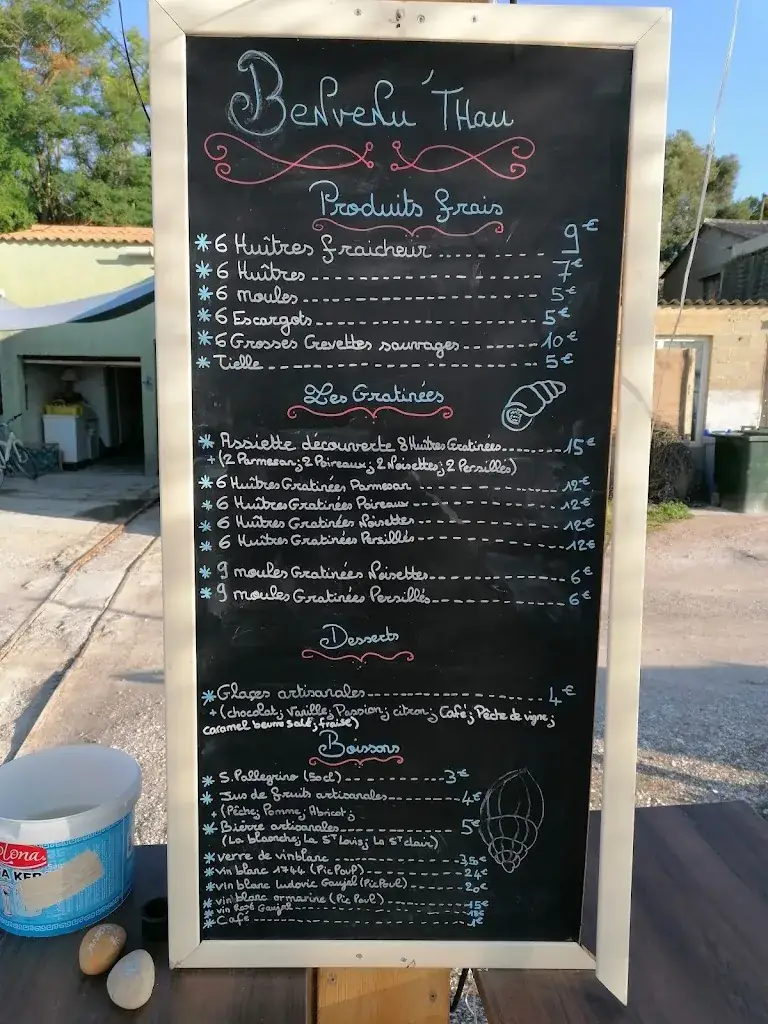 Benvenu'Thau
Produits frais
* 6 Huîtres fraicheur ........ 9€
* 6 Huîtres ........ 7€
* 6 moules ........ 5€
* 6 Escargots ........ 5€
* 6 Grosses Crevettes sauvages ........ 10€
* Tielle ........ 5€
Les Gratinées
* Assiette découverte 8 Huîtres Gratinées ........ 15€
+ (2 Parmesan; 2 Poireaux; 2 Noisettes; 2 Persillés)
* 6 Huîtres Gratinées Parmesan ........ 12€
* 6 Huîtres Gratinées Poireaux ........ 12€
* 6 Huîtres Gratinées Noisettes ........ 12€
* 6 Huîtres Gratinées Persillés ........ 12€
* 9 moules Gratinées Noisettes ........ 6€
* 9 moules Gratinées Persillés ........ 6€
Desserts
* Glaces artisanales ........ 4€
+ (chocolat; Vanille; Passion; citron; Café; Pêche de vigne;
caramel beurre salé; fraise)
Boissons
* S.Pellegrino (50cl) ........ 3€
* Jus de fruits artisanales ........ 4€
+ (Pêche, Pomme, Abricot;
* Bierre artisanales ........ 5€
(La blaonche; La St Louis; La St clair)
* verre de vin blanc ........ 3,50€
* vin blanc 1744 (Pic Poul) ........ 24€
* vin blanc Ludovic Gaujal (Pic Poul) ........ 20€
* vin blanc ormarine (Pic Poul) ........ 15€
* vin Rosé Gaujal ........ 15€
* Café ........ 1€
olona
A KEF